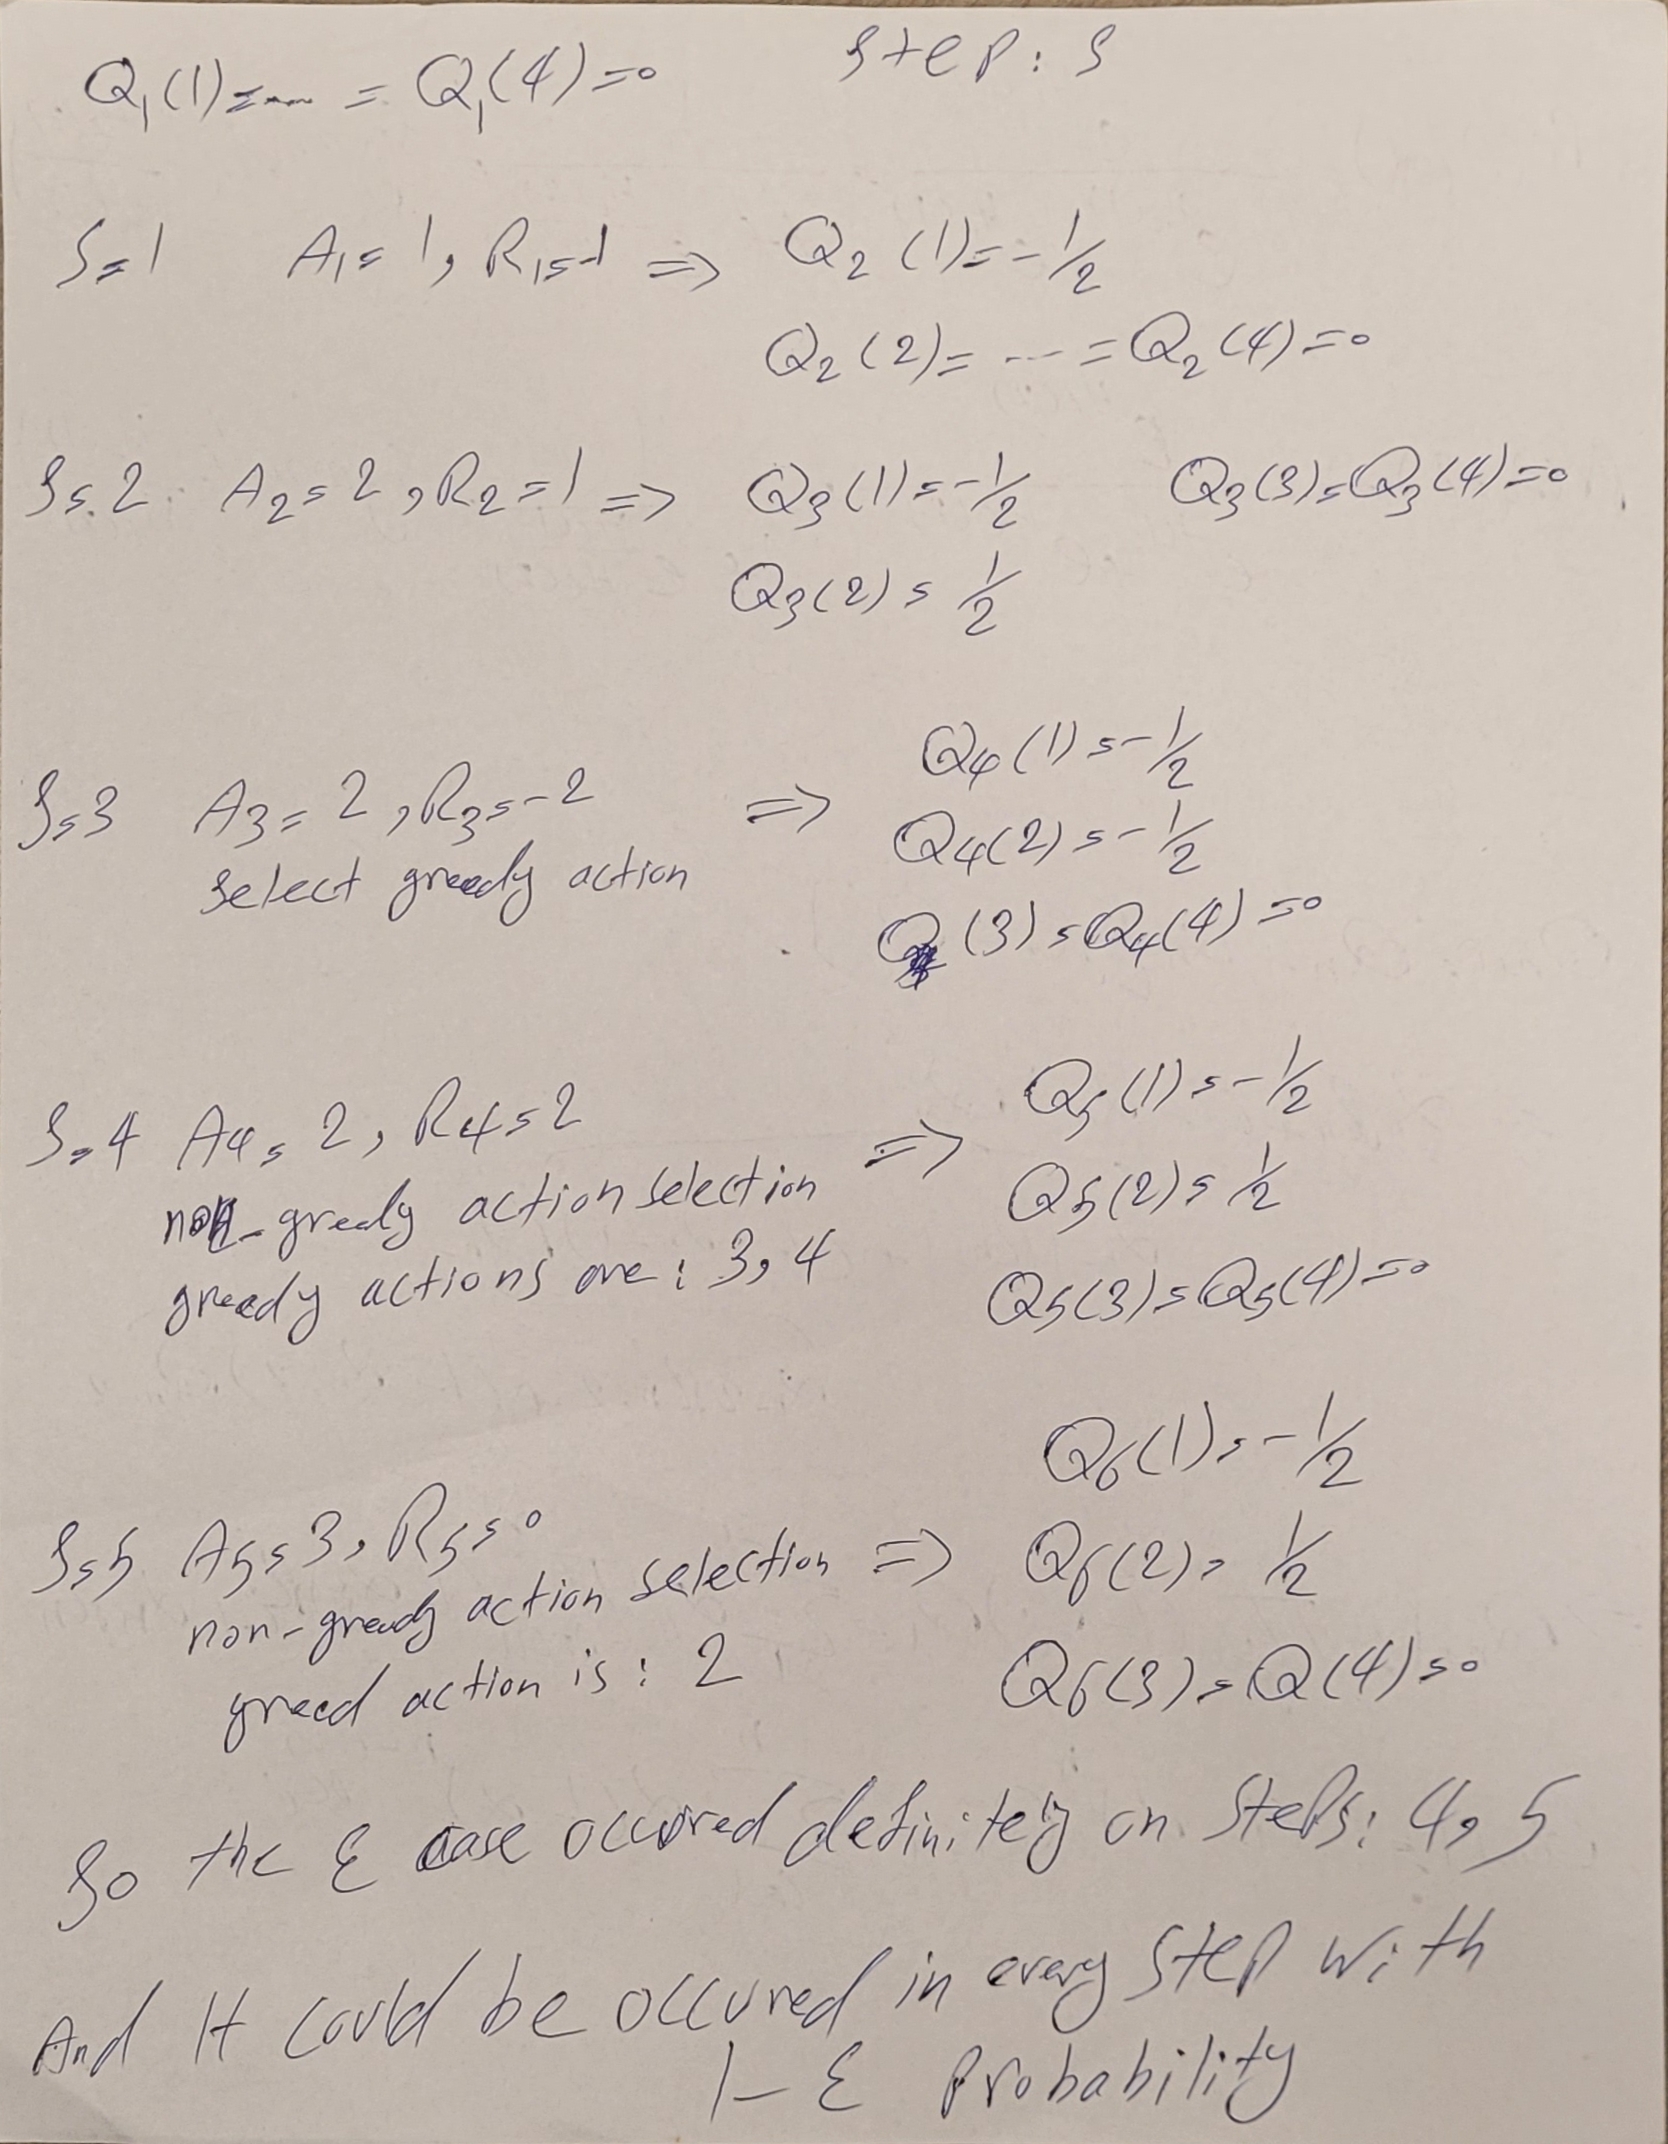 Q₁(1)=---- = Q₁(4)=0 Step: S
S=1 A₁=1, R₁=-1 => Q₂(1)=-1/2
Q₂(2)= --- = Q₂(4)=0
S=2 A₂=2, R₂=1 => Q₃(1)=-1/2 Q₃(3)=Q₃(4)=0
Q₃(2)=1/2
Q₄(1)=-1/2
S=3 A₃=2, R₃=-2 => Q₄(2)=-1/2
select greedy action
Q₄(3)=Q₄(4)=0
Q₅(1)=-1/2
S=4 A₄=2, R₄=2 =>
non-greedy action selection Q₅(2)=1/2
greedy actions are: 3, 4 Q₅(3)=Q₅(4)=0
Q₆(1)=-1/2
S=5 A₅=3, R₅=0 => Q₆(2)=1/2
non-greedy action selection
greed action is: 2 Q₆(3)=Q(4)=0
So the ε case occured definitely on Steps: 4, 5
And It could be occured in every step with
1-ε Probability